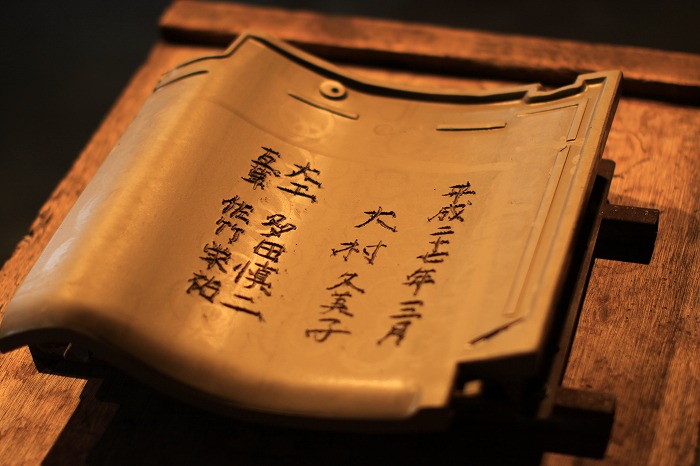 平成二十七年三月
大村久美子
大工 多田慎二
瓦葺 佐竹栄祐